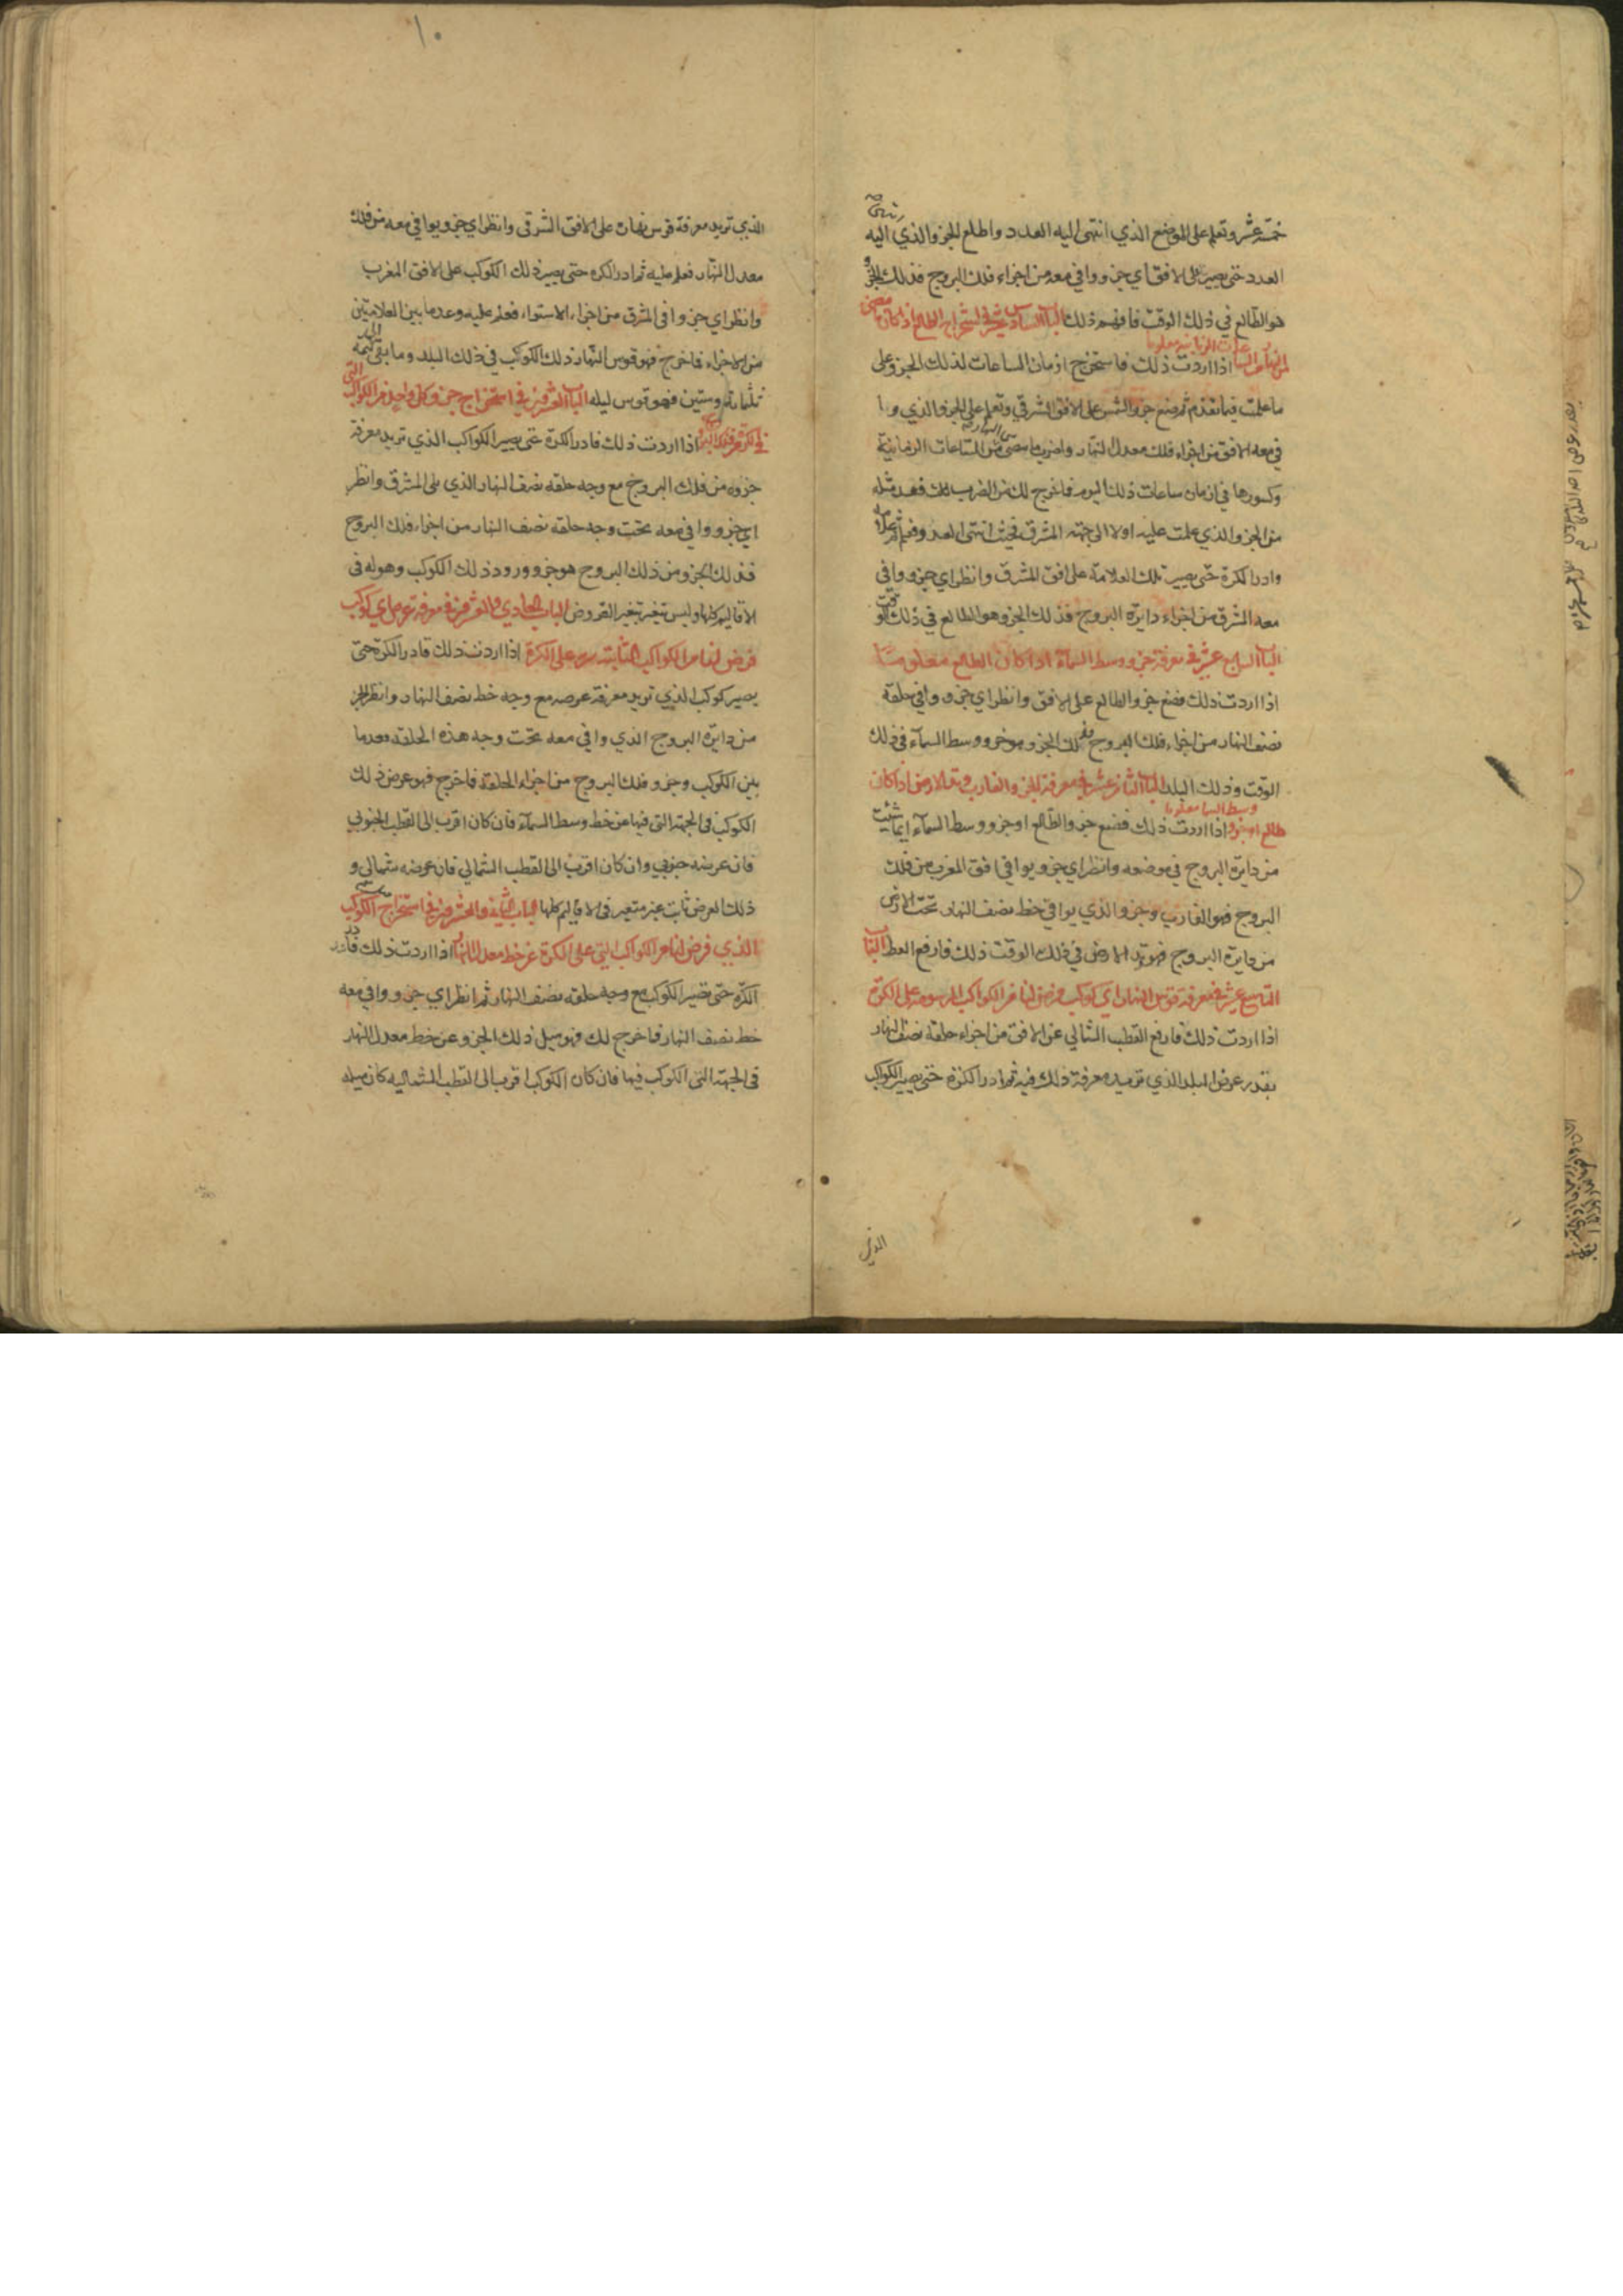 خمسة عشر وتعلم على الموضع الذي انتهى اليه العدد واطلع الجزو الذي اليه
انتهى
العدد حتى يصير على الافق اي جزو وافى معه من اجزاء فلك البروج فذلك الجزو
هو الطالع في ذلك الوقت فافهم ذلك الباب السادس عشر في استخراج الطالع اذا كان مضى
من النهار الساعات الزمانية معلوما اذا اردت ذلك فاستخرج ازمان الساعات لذلك الجزو على
ما علمت فيما تقدم ثم ضع جزو الشمس على الافق الشرقي وتعلم على الجزو الذي وا
فى معه الافق من اجزاء فلك معدل النهار واضرب ما مضى من النهار من الساعات الزمانية
وكسورها في ازمان ساعات ذلك اليوم فما خرج لك من الضرب لك فعد مثله
من الجزو الذي علمت عليه اولا الى جهة المشرق فحيث انتهى العدد فعلم ثم علامة
وادر الكرة حتى يصير تلك العلامة على افق المشرق وانظر اي جزو وافى
معه المشرق من اجزاء دايرة البروج فذلك الجزو هو الطالع في ذلك الوقت
الباب السابع عشر في معرفة جزو وسط السماء اذا كان الطالع معلوما
اذا اردت ذلك فضع جزو الطالع على الافق وانظر اي جزو وافى حلقة
نصف النهار من اجزاء فلك البروج فذلك الجزو هو جزو وسط السماء في ذلك
الوقت وذلك البلد الباب الثامن عشر في معرفة الجزو الغارب وتد الارض اذا كان
طالع او جزو وسط السما معلوما اذا اردت ذلك فضع جزو الطالع او جزو وسط السماء ايما شئت
من دايرة البروج في موضعه وانظر اي جزو يوافي افق المغرب من فلك
البروج فهو الغارب وجزو الذي يوافي خط نصف النهار تحت الارض
من دايرة البروج فهو وتد الارض في ذلك الوقت ذلك فارفع العطـ الباب
التاسع عشر في معرفة قوس النهار اي كوكب فرض لنا من الكواكب المرسومة على الكرة
اذا اردت ذلك فارفع القطب الشمالي عن الافق من اجزاء حلقة نصف النهار
بقدر عرض البلد الذي تريد معرفة ذلك فيه ثم ادر الكرة حتى يصير الكواكب
الذي
١٠
الذي تريد معرفة قوس نهاره على الافق الشرقي وانظر اي جزو يوافي معه من فلك
معدل النهار فعلم عليه ثم ادر الكرة حتى يصير ذلك الكوكب على الافق المغرب
وانظر اي جزو وافى المشرق من اجزاء الاستواء فعلم عليه وعد ما بين العلامتين
من الاجزاء فما خرج فهو قوس النهار ذلك الكوكب في ذلك البلد وما بقي لتمة
ثلثمائة وستين فهو قوس ليله الباب العشرون في استخراج جزو كل واحد من الكواكب التي
في الكرة من فلك البروج اذا اردت ذلك فادر الكرة حتى يصير الكواكب الذي تريد معرفة
جزوه من فلك البروج مع وجه حلقة نصف النهار الذي يلي المشرق وانظر
اي جزو وافى معه تحت وجه حلقة نصف النهار من اجزاء فلك البروج
فذلك الجزو من ذلك البروج هو جزو ورود ذلك الكوكب وهو له في
الاقاليم كلها وليس تتغير بتغير العروض الباب الحادي والعشرون في معرفة عرض اي كوكب
فرض لنا من الكواكب الثابتة على الكرة اذا اردت ذلك فادر الكرة حتى
يصير كوكب الذي تريد معرفة عرضه مع وجه خط نصف النهار وانظر الجز
من دايرة البروج الذي وافى معه تحت وجه هذه الحلقة فعد ما
بين الكوكب وجزو فلك البروج من اجزاء الحلقة فما خرج فهو عرض ذلك
الكوكب في الجهة التي فيها من خط وسط السماء فان كان اقرب الى القطب الجنوبي
فان عرضه جنوبي وان كان اقرب الى القطب الشمالي فان عرضه شمالي و
ذلك العرض ثابت غير متغير في الاقاليم كلها الباب الثاني والعشرون في استخراج ميل الكوكب
الذي فرض لنا من الكواكب التي على الكرة عن خط معدل النهار اذا اردت ذلك فادر
الكرة حتى تصير الكوكب مع وجه حلقة نصف النهار ثم انظر اي جزو وافى معه
خط نصف النهار فما خرج لك فهو ميل ذلك الجزو عن خط معدل النهار
في الجهة التي الكوكب فيها فان كان الكوكب اقرب الى القطب الشمالية كان ميله